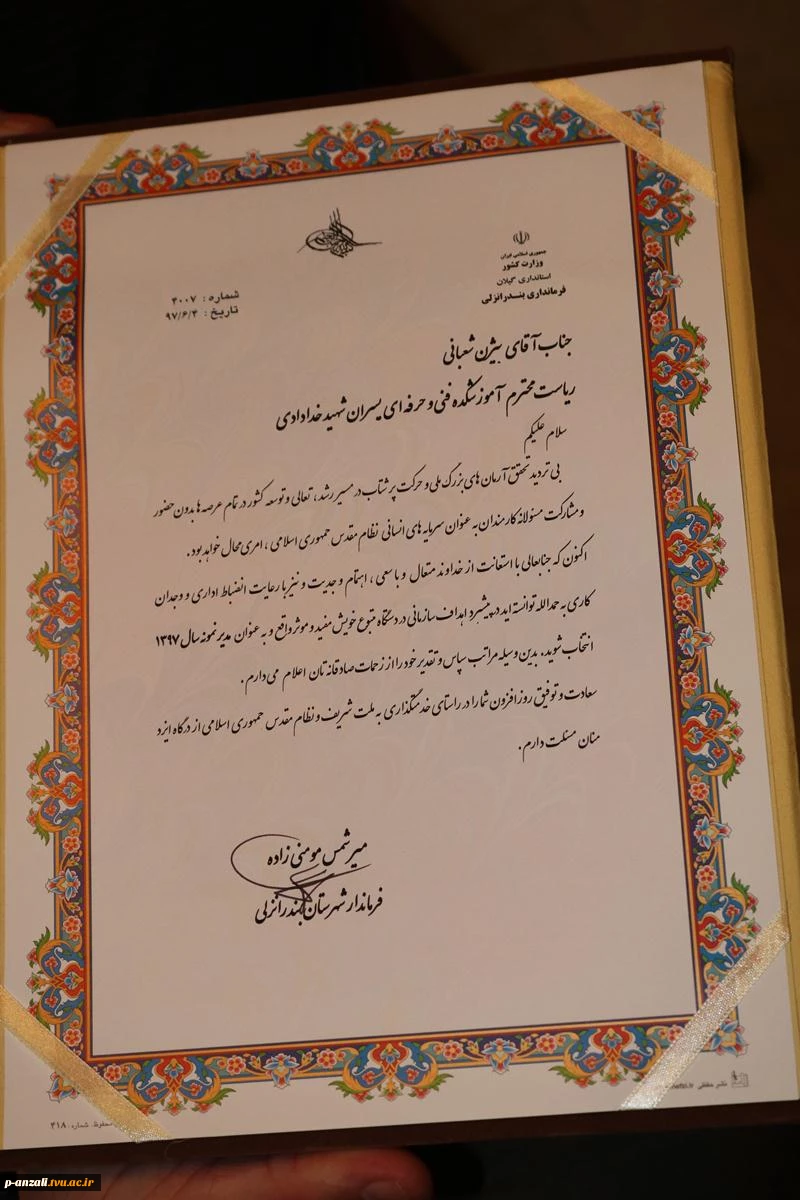 جمهوری اسلامی ایران
وزارت کشور
استانداری گیلان
فرمانداری بندرانزلی
شماره: ۴۰۰۷
تاریخ: ۹۷/۶/۴
جناب آقای بیژن شعبانی
ریاست محترم آموزشکده فنی و حرفه ای پسران شهید خدادادی
سلام علیکم
بی تردید تحقق آرمان های بزرگ ملی و حرکت پرشتاب در مسیر رشد، تعالی و توسعه کشور در تمام عرصه ها بدون حضور
و مشارکت مسئولانه کارمندان به عنوان سرمایه های انسانی نظام مقدس جمهوری اسلامی، امری محال خواهد بود.
اکنون که جنابعالی با استعانت از خداوند متعال و با سعی، اهتمام و جدیت و نیز با رعایت انضباط اداری و وجدان
کاری به حمدالله توانسته اید در پیشبرد اهداف سازمانی در دستگاه متبوع خویش مفید و موثر واقع و به عنوان مدیر نمونه سال ۱۳۹۷
انتخاب شوید. بدین وسیله مراتب سپاس و تقدیر خود را از زحمات صادقانه تان اعلام می دارم.
سعادت و توفیق روزافزون شما را در راستای خدمتگذاری به ملت شریف و نظام مقدس جمهوری اسلامی از درگاه ایزد
منان مسئلت دارم.
میرشمس مومنی زاده
فرماندار شهرستان بندرانزلی
نشر حفظی
محفوظ. شماره: ۴۱۸
p-anzali.tvu.ac.ir